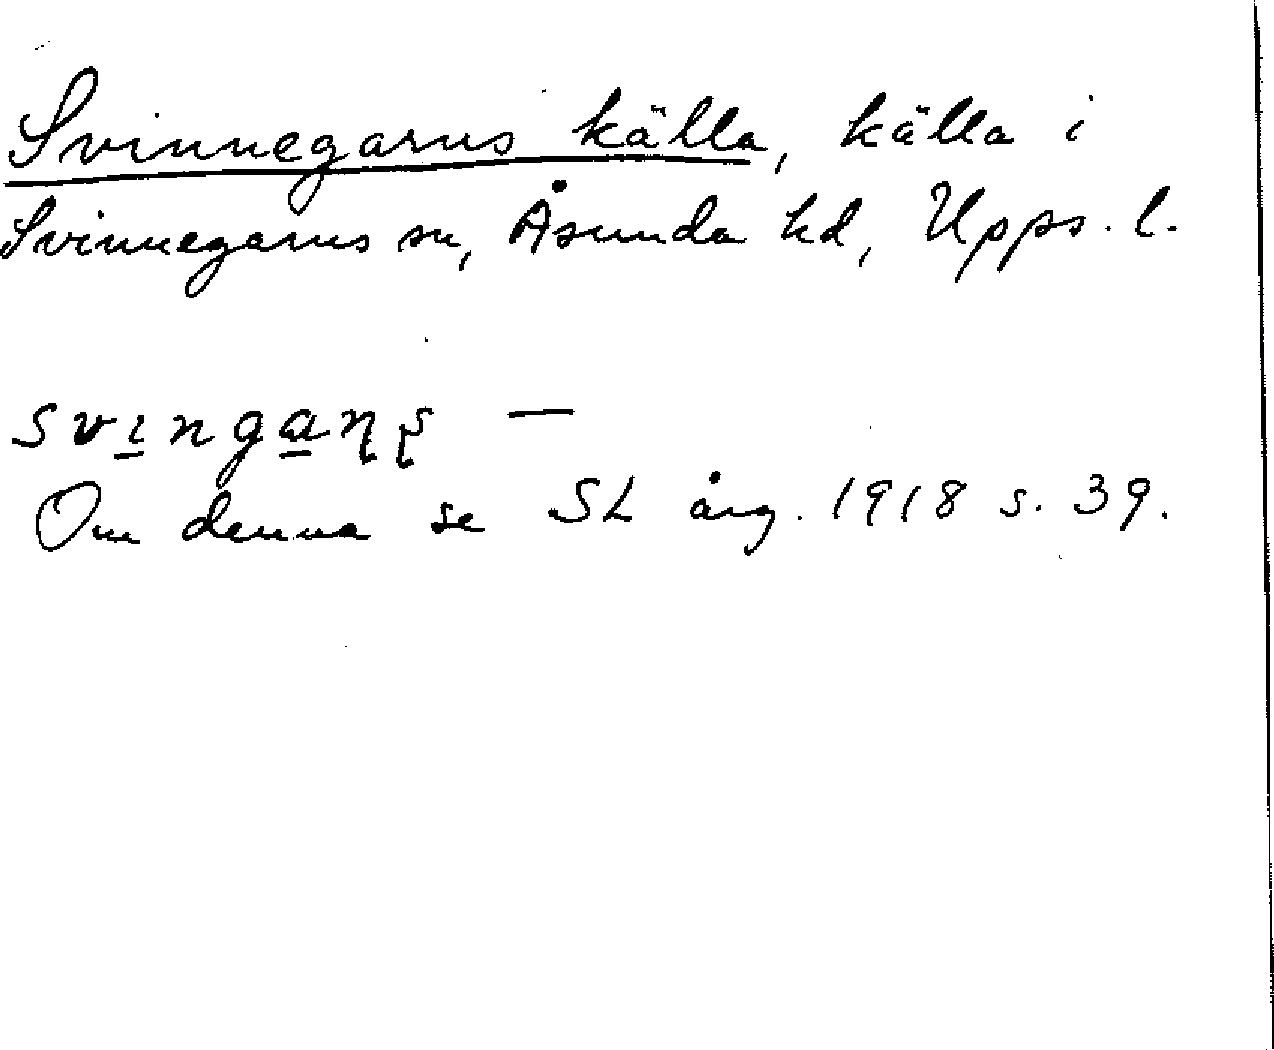 Svinnegarns källa, källa i
Svinnegarns sn, Åsunda hd, Upps. l.
svi̲nga̲ɳʂ —
Om denna se SL årg. 1918 s. 39.